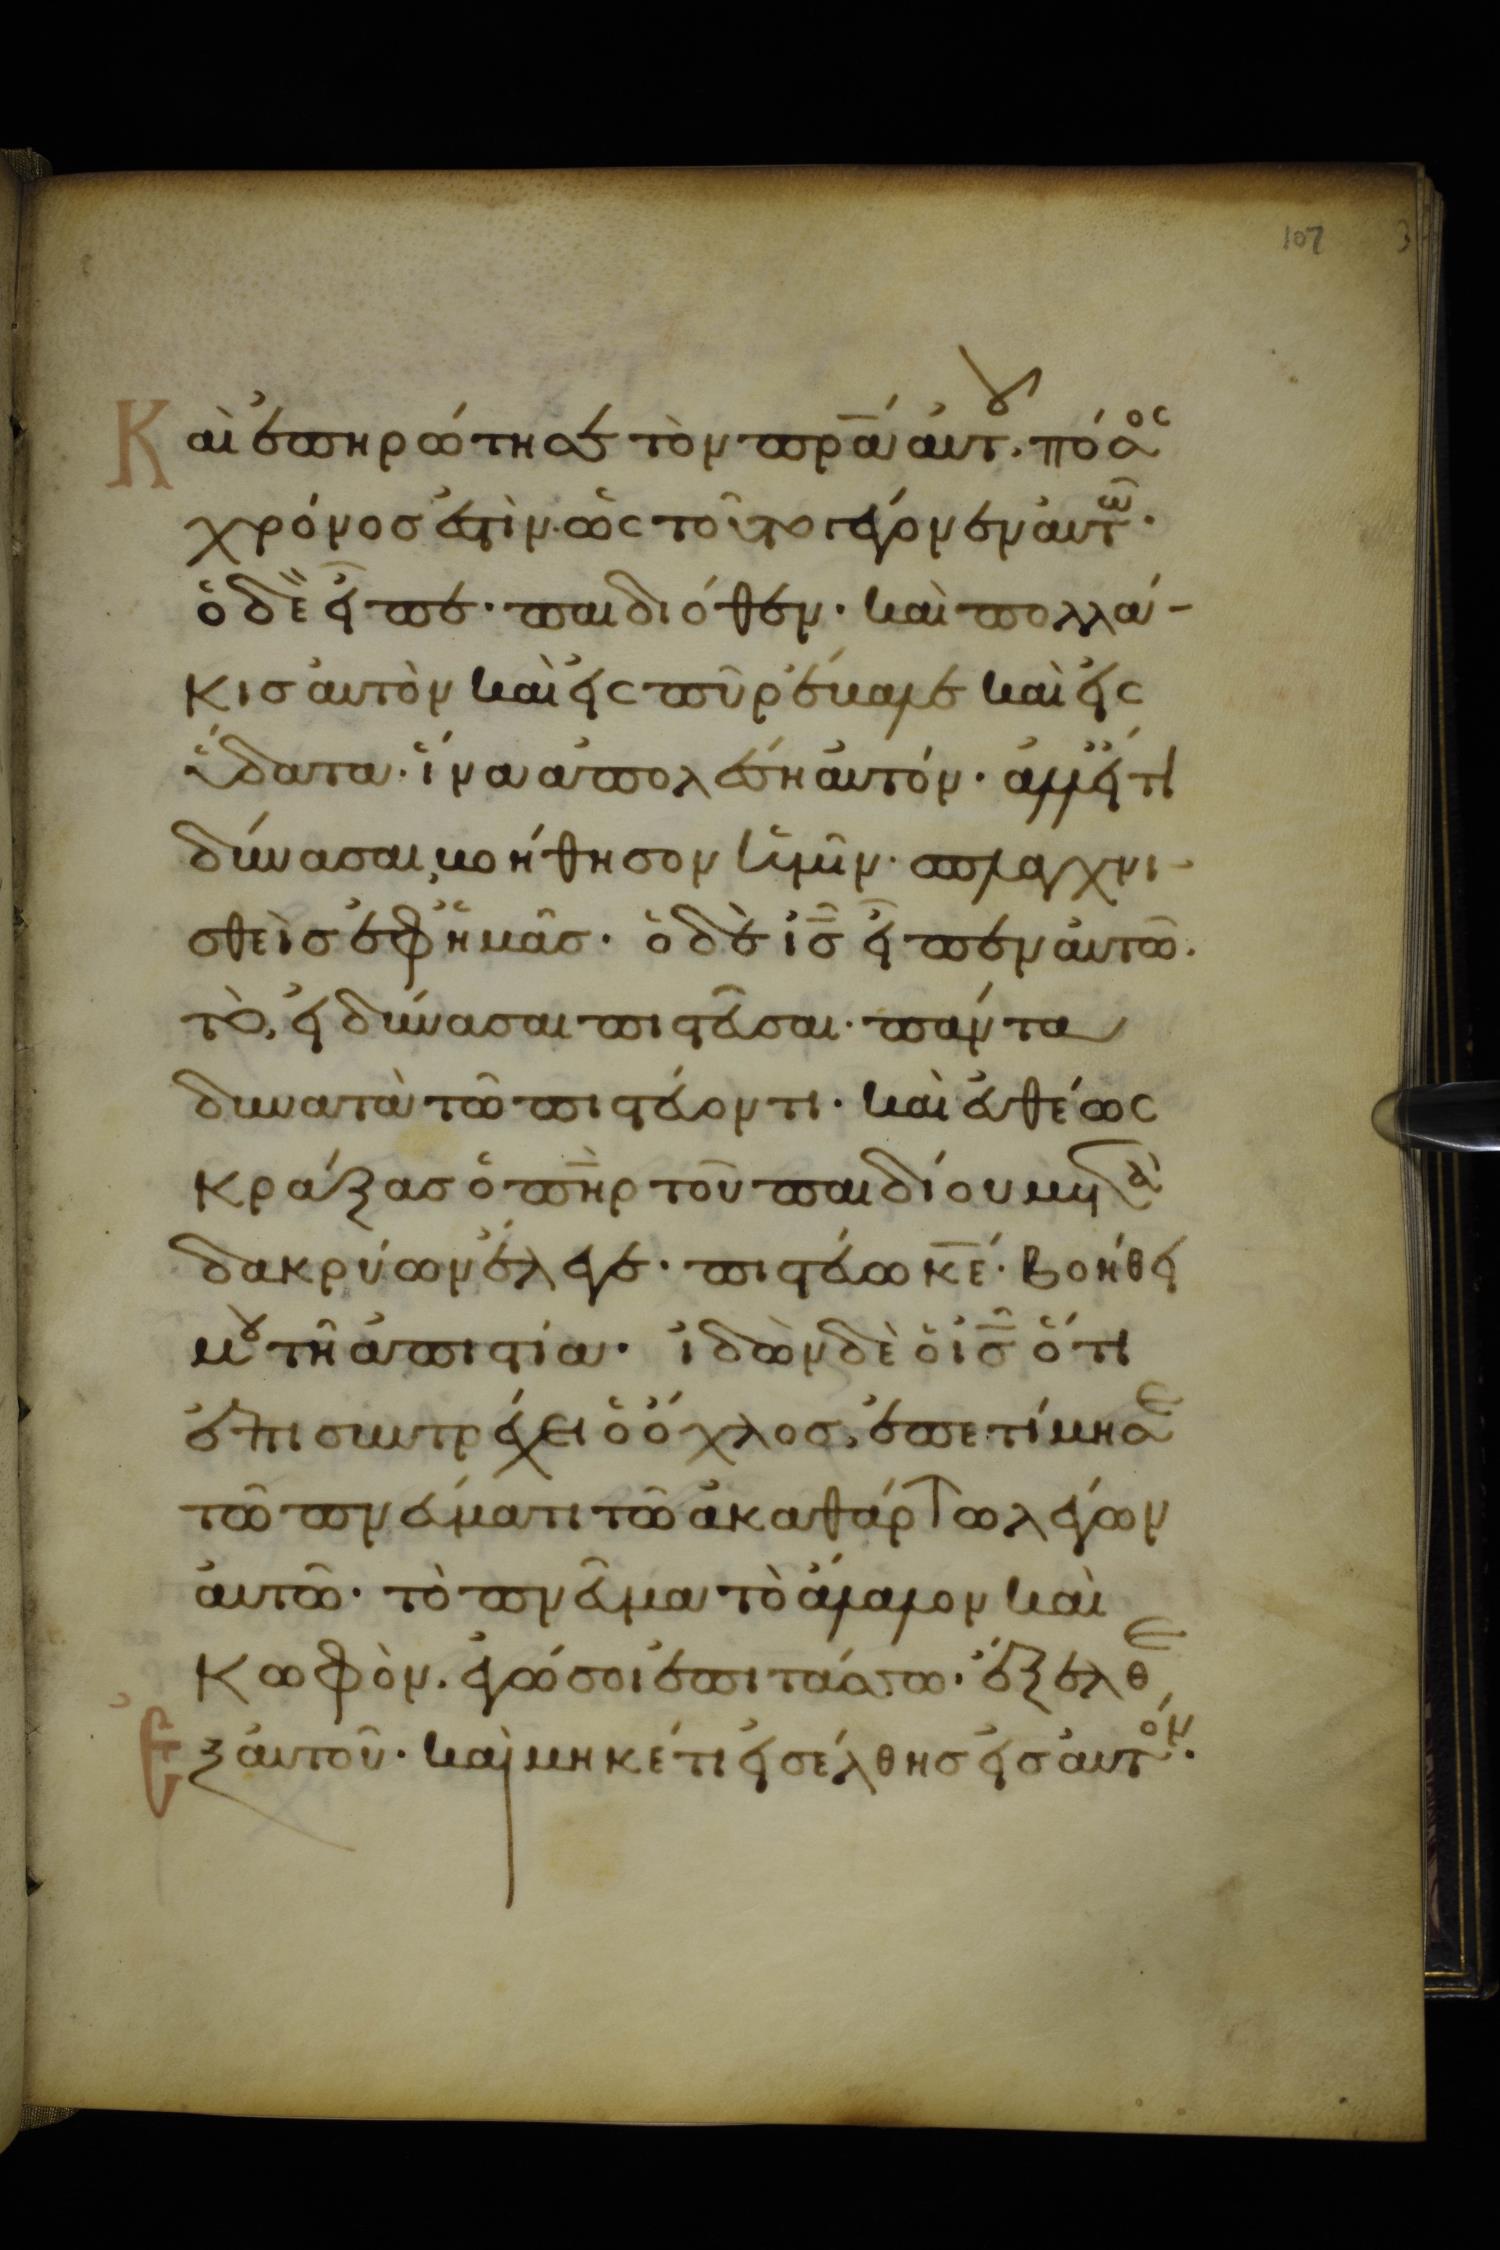 107
Καὶ ἐπηρώτησε τὸν πρ̅ά ἀυτοῦ. πόσος
χρόνοσ ἐστὶν. ὡς τοῦτο γέγονεν ἀυτῶ.
ὁ δὲ εἶπε. παιδιόθεν. καὶ πολλά-
κισ ἀυτὸν καὶ εἰς πῦρ ἔβαλε καὶ εἰς
ὕδατα. ἵνα ἀπολέση ἀυτόν. ἀλλ εἴ τι
δύνασαι, βοήθησον ἡμῖν. σπλαγχνι-
σθεὶσ ἐφ ἡμᾶσ. ὁ δὲ ι̅σ̅ εἶπεν ἀυτῶ.
τὸ, εἰ δύνασαι πιστεῦσαι. πάντα
δυνατὰ τῶ πιστεύοντι. καὶ ἐυθέως
κράξασ ὁ π̅ηρ τοῦ παιδίου μετὰ
δακρύων ἔλεγε. πιστεύω κ̅ε. βοήθει
μου τῆ ἀπιστία. ἰδὼν δὲ ὁ ι̅σ̅ ὅτι
ἐπισυντρέχει ὁ ὄχλος, ἐπετίμησε
τῶ πνεύματι τῶ ἀκαθάρτω λέγων
ἀυτῶ. τὸ πνεῦμα τὸ ἄλαλον καὶ
κωφὸν. ἐγώ σοι ἐπιτάσσω. ἔξελθε
ἐξ ἀυτοῦ. καὶ μηκέτι εἰσέλθησ εἰσ ἀυτόν.